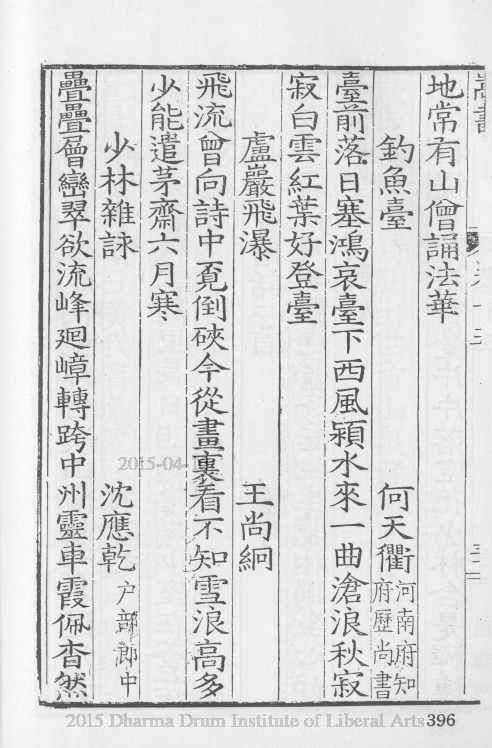 地常有山僧誦法華
釣魚臺 何天衢 河南府知府歷尚書
臺前落日塞鴻哀臺下西風潁水來一曲滄浪秋寂
寂白雲紅葉好登臺
盧巖飛瀑 王尚絅
飛流曾向詩中覔倒硤今從畫裏看不知雪浪高多
少能遣茅齋六月寒
少林雜詠 沈應乾 户部郎中
疊疊層巒翠欲流峰廻嶂轉跨中州靈車霞佩杳然
2015-04-
2015 Dharma Drum Institute of Liberal Arts 396